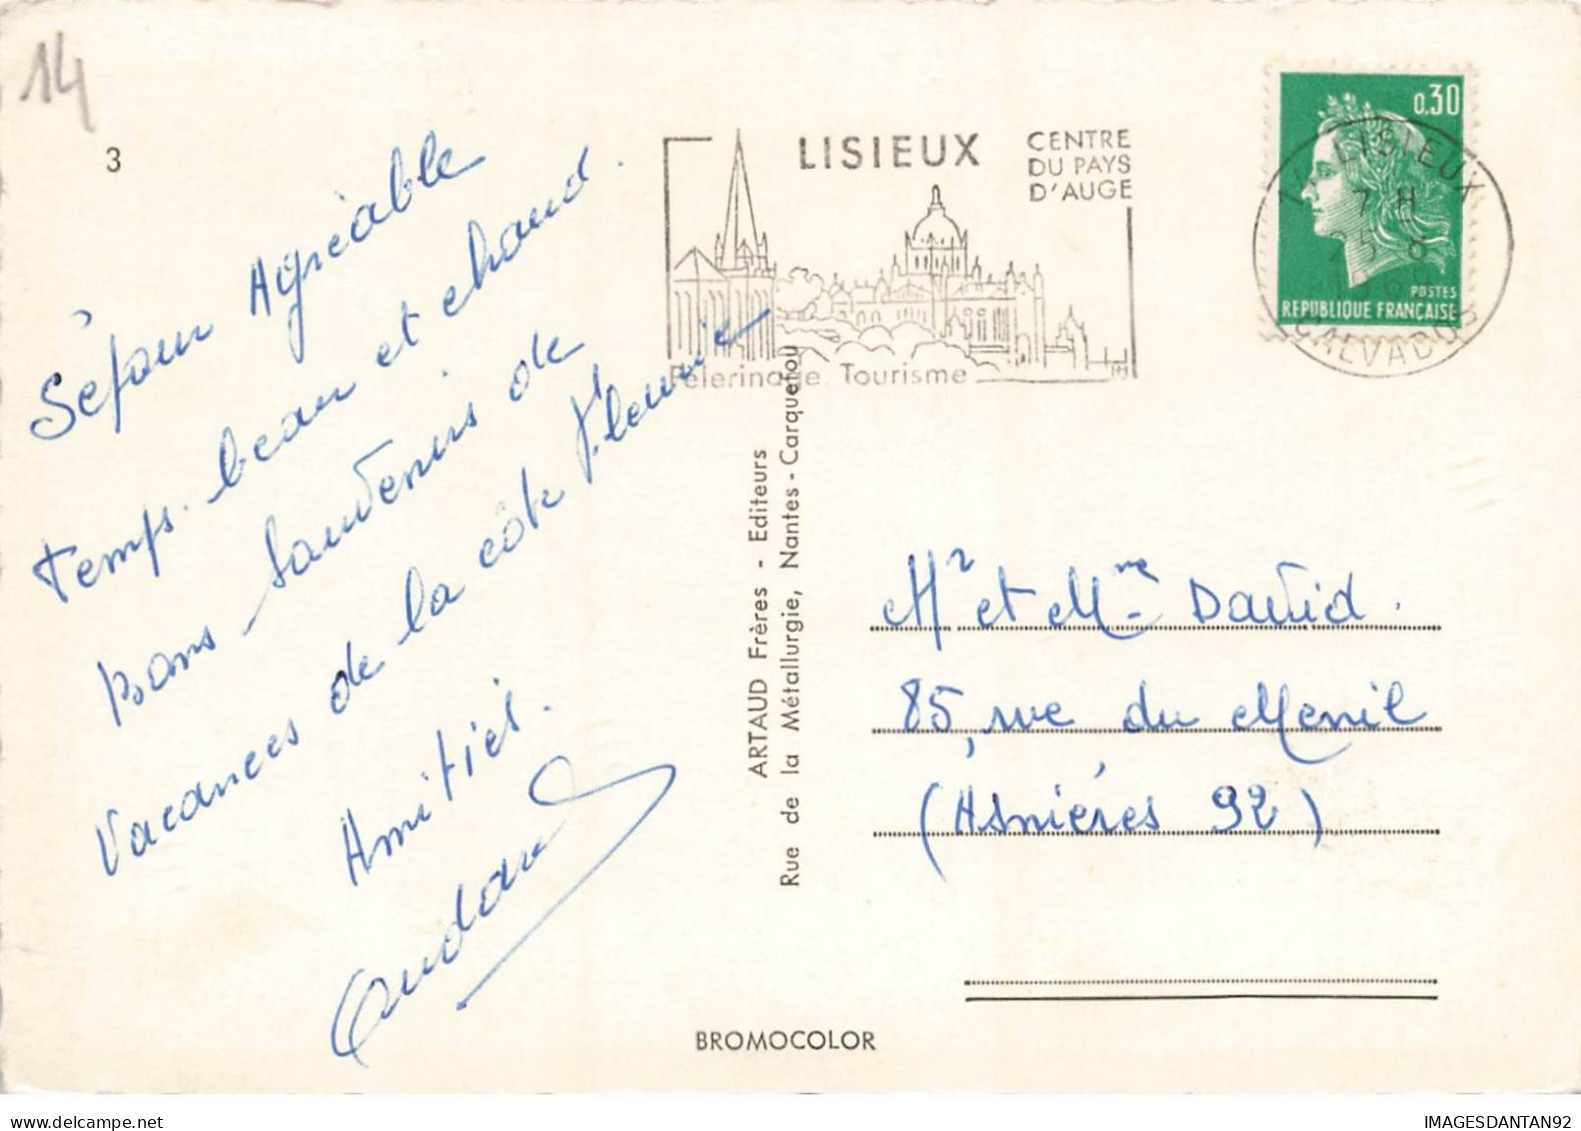 14
3
Séjour Agréable
Temps beau et chaud.
Bons Souvenirs de
Vacances de la côte Fleurie
Amitiés.
LISIEUX
CENTRE
DU PAYS
D'AUGE
Pèlerinage Tourisme
0,30
POSTES
REPUBLIQUE FRANÇAISE
LISIEUX
7 H
25 - 8
CALVADOS
ARTAUD Frères - Editeurs
Rue de la Métallurgie, Nantes - Carquefou
Mr et Mme David.
85, rue du Menil
(Asniéres 92)
BROMOCOLOR
IMAGESDANTAN92